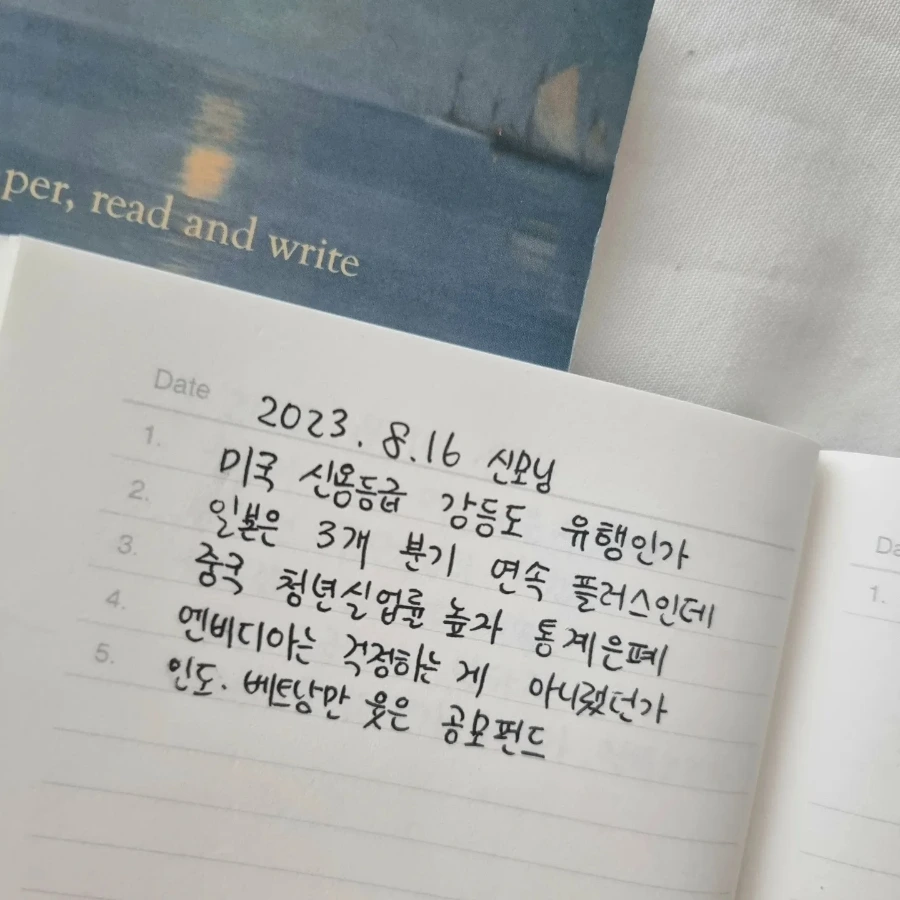 per, read and write
Date 2023.8.16 신모닝
1. 미국 신용등급 강등도 유행인가
2. 일본은 3개 분기 연속 플러스인데
3. 중국 청년실업률 높자 통계은폐
4. 엔비디아는 걱정하는 게 아니랬던가
5. 인도·베트남만 웃은 공모펀드
Da
1.